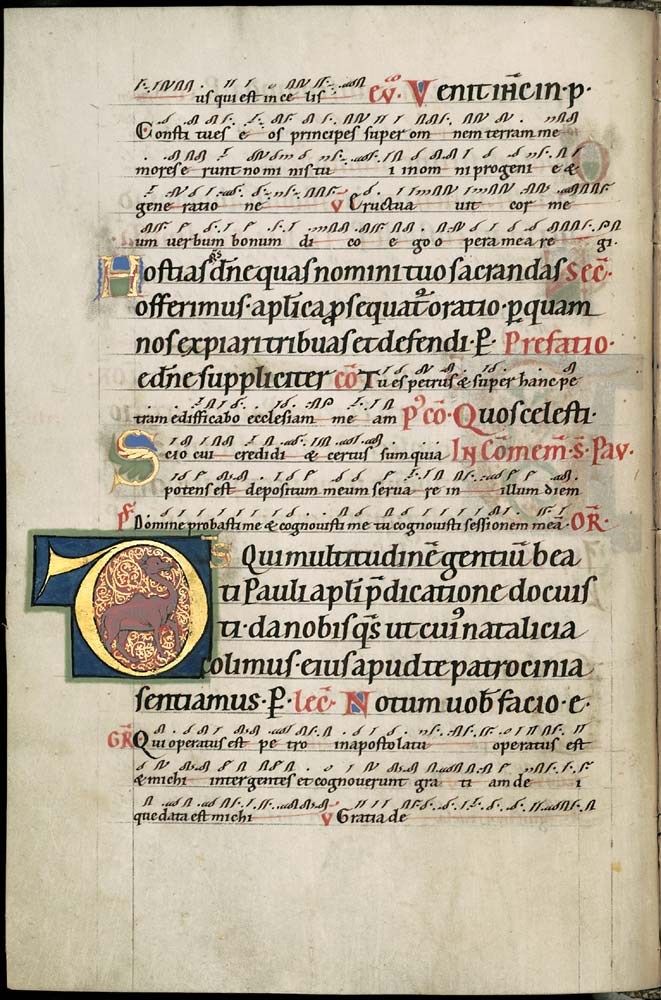 us qui est in ce lis ev̄co Venit ih̄c in · p ·
Consti tues e os principes super om nem terram me
mores e runt no mi nis tu i in om ni progeni e & O
gene ratio ne V Eructua uit cor me
um uerbum bonum di co e go o pera mea re gi ·
Hostias dn̄e quas nomini tuo sacrandas Sec̄ ·
offerimus · apl̄ica ꝓsequat᷒ oratio · ꝑ quam
nos expiari tribuas et defendi · P̲ · Prefatio ·
e dn̄e suppliciter cō Tu es petrus & super hanc pe
tram edifficabo ecclesiam me am Pꝰ cō · Quos celesti ·
Scio cui credidi & certus sum quia In cōmem̄ · S̄ · Pav ·
potens est depositum meum serua re in illum diem
Pſ Domine probasti me & cognouisti me tu cognouisti sessionem meā · OR̄ ·
DS Qui multitudinē gentiū bea
ti Pauli apl̄i p̄dicatione docuis
ti · da nobis qs̄ ut cui᷒ natalicia
colimus · eius apud te patrocinia
sentiamus · P̲ · lec̄ · Notum uob̄ facio · e ·
GR̄ Qui operatus est pe tro in apostolatu operatus est
& michi inter gentes et cognouerunt gra ti am de i
que data est michi V Gratia de